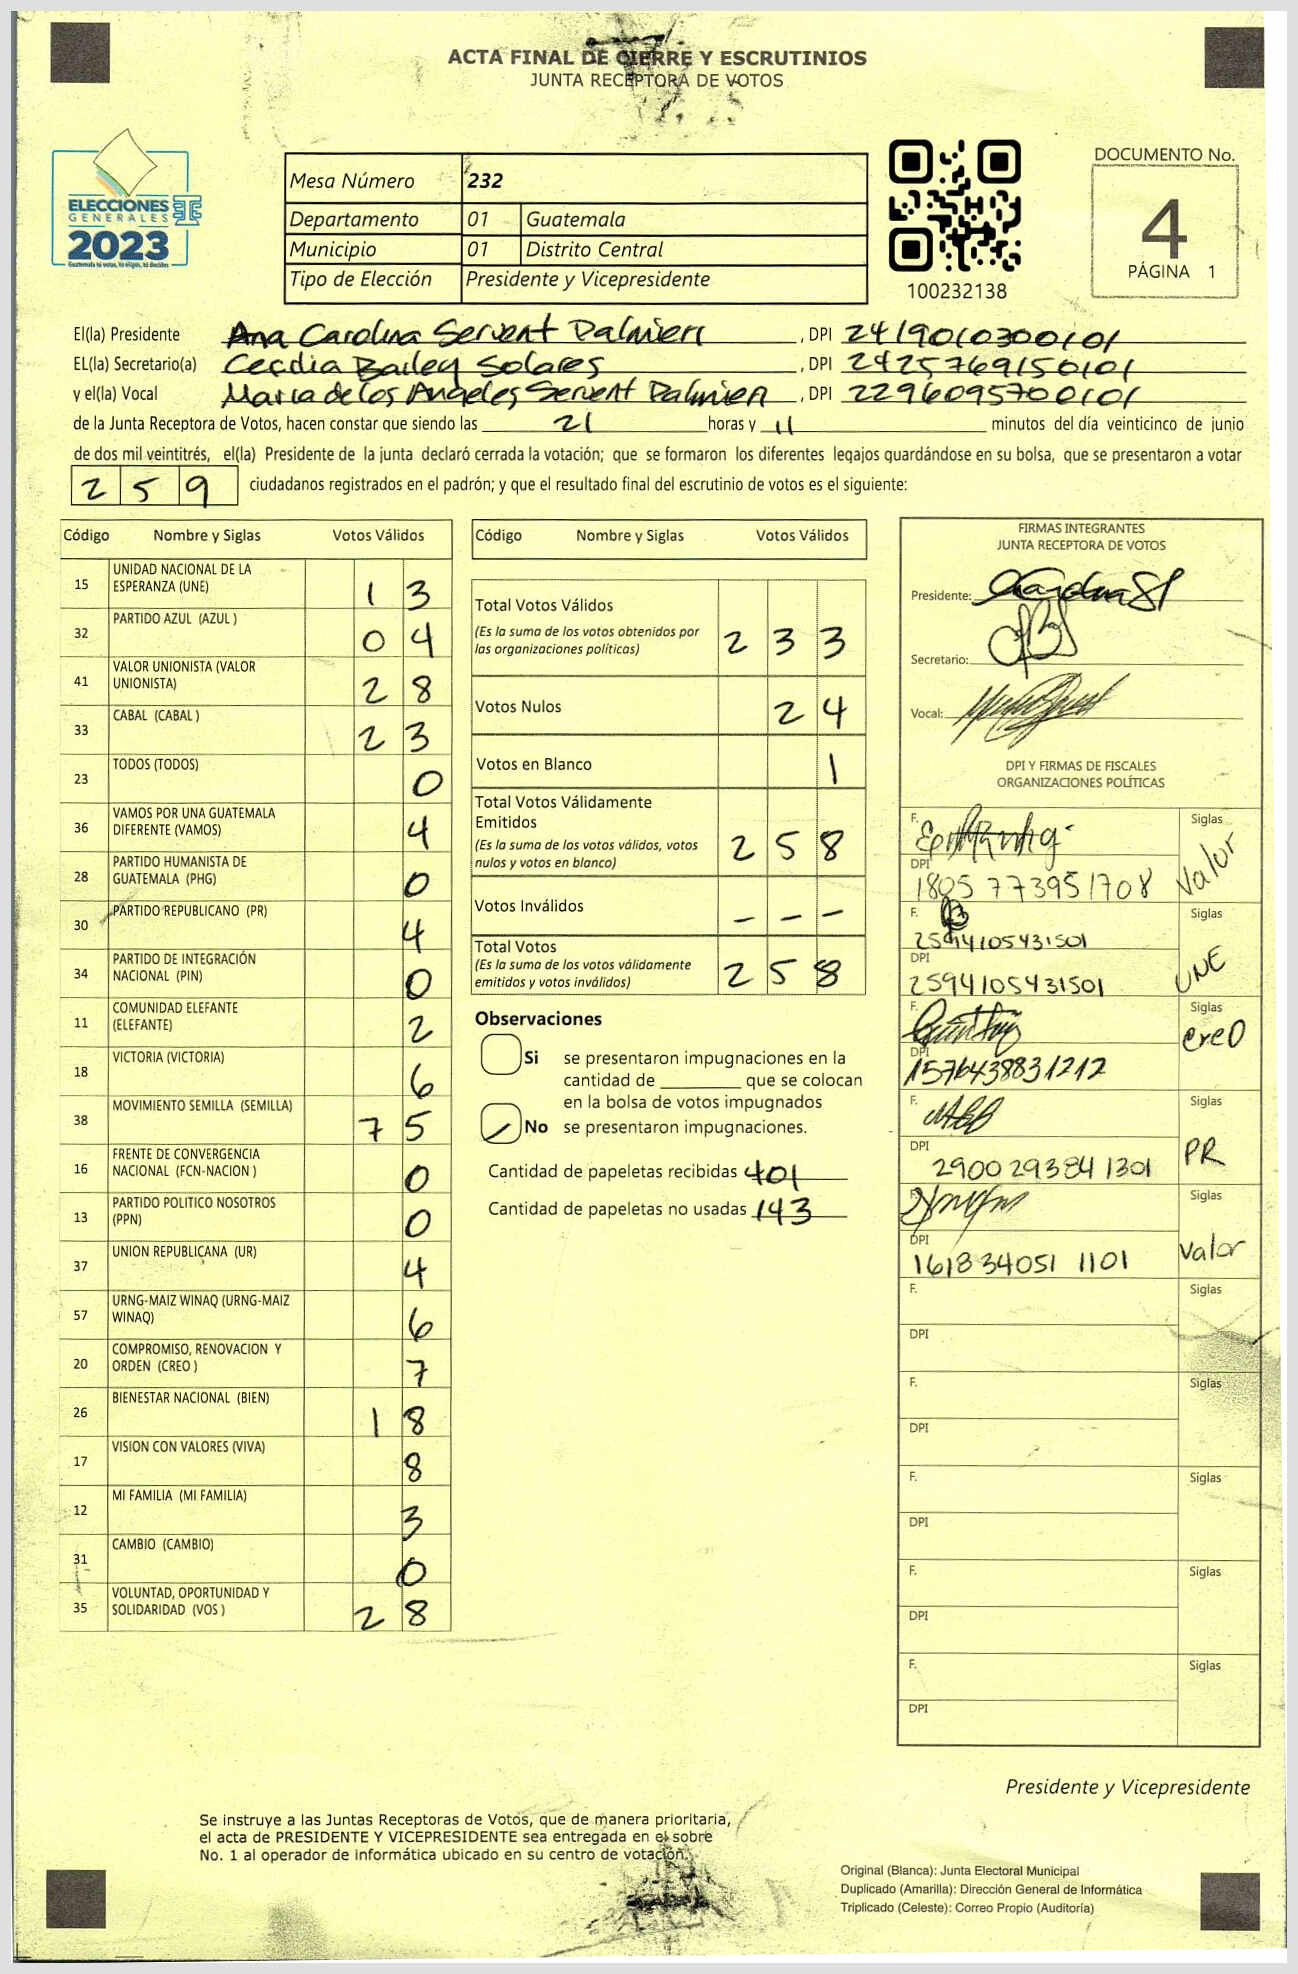 ACTA FINAL DE CIERRE Y ESCRUTINIOS
JUNTA RECEPTORA DE VOTOS
ELECCIONES
GENERALES
2023
Guatemala tú votas, tú eliges, tú decides
Mesa Número 232
Departamento 01 Guatemala
Municipio 01 Distrito Central
Tipo de Elección Presidente y Vicepresidente
100232138
DOCUMENTO No.
4
PÁGINA 1
El(la) Presidente Ana Carolina Servent Palmieri, DPI 2419010300101
EL(la) Secretario(a) Cecilia Bailey Solares, DPI 2425769150101
y el(la) Vocal Maria de los Angeles Servent Palmieri, DPI 2296095700101
de la Junta Receptora de Votos, hacen constar que siendo las 21 horas y 11 minutos del día veinticinco de junio
de dos mil veintitrés, el(la) Presidente de la junta declaró cerrada la votación; que se formaron los diferentes legajos guardándose en su bolsa, que se presentaron a votar
259 ciudadanos registrados en el padrón; y que el resultado final del escrutinio de votos es el siguiente:
Código Nombre y Siglas Votos Válidos
15 UNIDAD NACIONAL DE LA
ESPERANZA (UNE) 13
32 PARTIDO AZUL (AZUL ) 04
41 VALOR UNIONISTA (VALOR
UNIONISTA) 28
33 CABAL (CABAL ) 23
23 TODOS (TODOS) 0
36 VAMOS POR UNA GUATEMALA
DIFERENTE (VAMOS) 4
28 PARTIDO HUMANISTA DE
GUATEMALA (PHG) 0
30 PARTIDO REPUBLICANO (PR) 4
34 PARTIDO DE INTEGRACIÓN
NACIONAL (PIN) 0
11 COMUNIDAD ELEFANTE
(ELEFANTE) 2
18 VICTORIA (VICTORIA) 6
38 MOVIMIENTO SEMILLA (SEMILLA) 75
16 FRENTE DE CONVERGENCIA
NACIONAL (FCN-NACION ) 0
13 PARTIDO POLITICO NOSOTROS
(PPN) 0
37 UNION REPUBLICANA (UR) 4
57 URNG-MAIZ WINAQ (URNG-MAIZ
WINAQ) 6
20 COMPROMISO, RENOVACION Y
ORDEN (CREO ) 7
26 BIENESTAR NACIONAL (BIEN) 18
17 VISION CON VALORES (VIVA) 8
12 MI FAMILIA (MI FAMILIA) 3
31 CAMBIO (CAMBIO) 0
35 VOLUNTAD, OPORTUNIDAD Y
SOLIDARIDAD (VOS ) 28
Código Nombre y Siglas Votos Válidos
Total Votos Válidos
(Es la suma de los votos obtenidos por
las organizaciones políticas) 233
Votos Nulos 24
Votos en Blanco 1
Total Votos Válidamente
Emitidos
(Es la suma de los votos válidos, votos
nulos y votos en blanco) 258
Votos Inválidos - - -
Total Votos
(Es la suma de los votos válidamente
emitidos y votos inválidos) 258
Observaciones
Si se presentaron impugnaciones en la
cantidad de ________ que se colocan
en la bolsa de votos impugnados
No se presentaron impugnaciones.
Cantidad de papeletas recibidas 401
Cantidad de papeletas no usadas 143
FIRMAS INTEGRANTES
JUNTA RECEPTORA DE VOTOS
Presidente:
Secretario:
Vocal:
DPI Y FIRMAS DE FISCALES
ORGANIZACIONES POLÍTICAS
F. Siglas
DPI 1805 773951708 Valor
F. Siglas
2594105431501
DPI
2594105431501 UNE
F. Siglas
DPI 1576438831212 creO
F. Siglas
DPI 2900 29384 1301 PR
F. Siglas
DPI 1618 34051 1101 Valor
F. Siglas
DPI
F. Siglas
DPI
F. Siglas
DPI
F. Siglas
DPI
F. Siglas
DPI
Presidente y Vicepresidente
Se instruye a las Juntas Receptoras de Votos, que de manera prioritaria,
el acta de PRESIDENTE Y VICEPRESIDENTE sea entregada en el sobre
No. 1 al operador de informática ubicado en su centro de votación.
Original (Blanca): Junta Electoral Municipal
Duplicado (Amarilla): Dirección General de Informática
Triplicado (Celeste): Correo Propio (Auditoría)